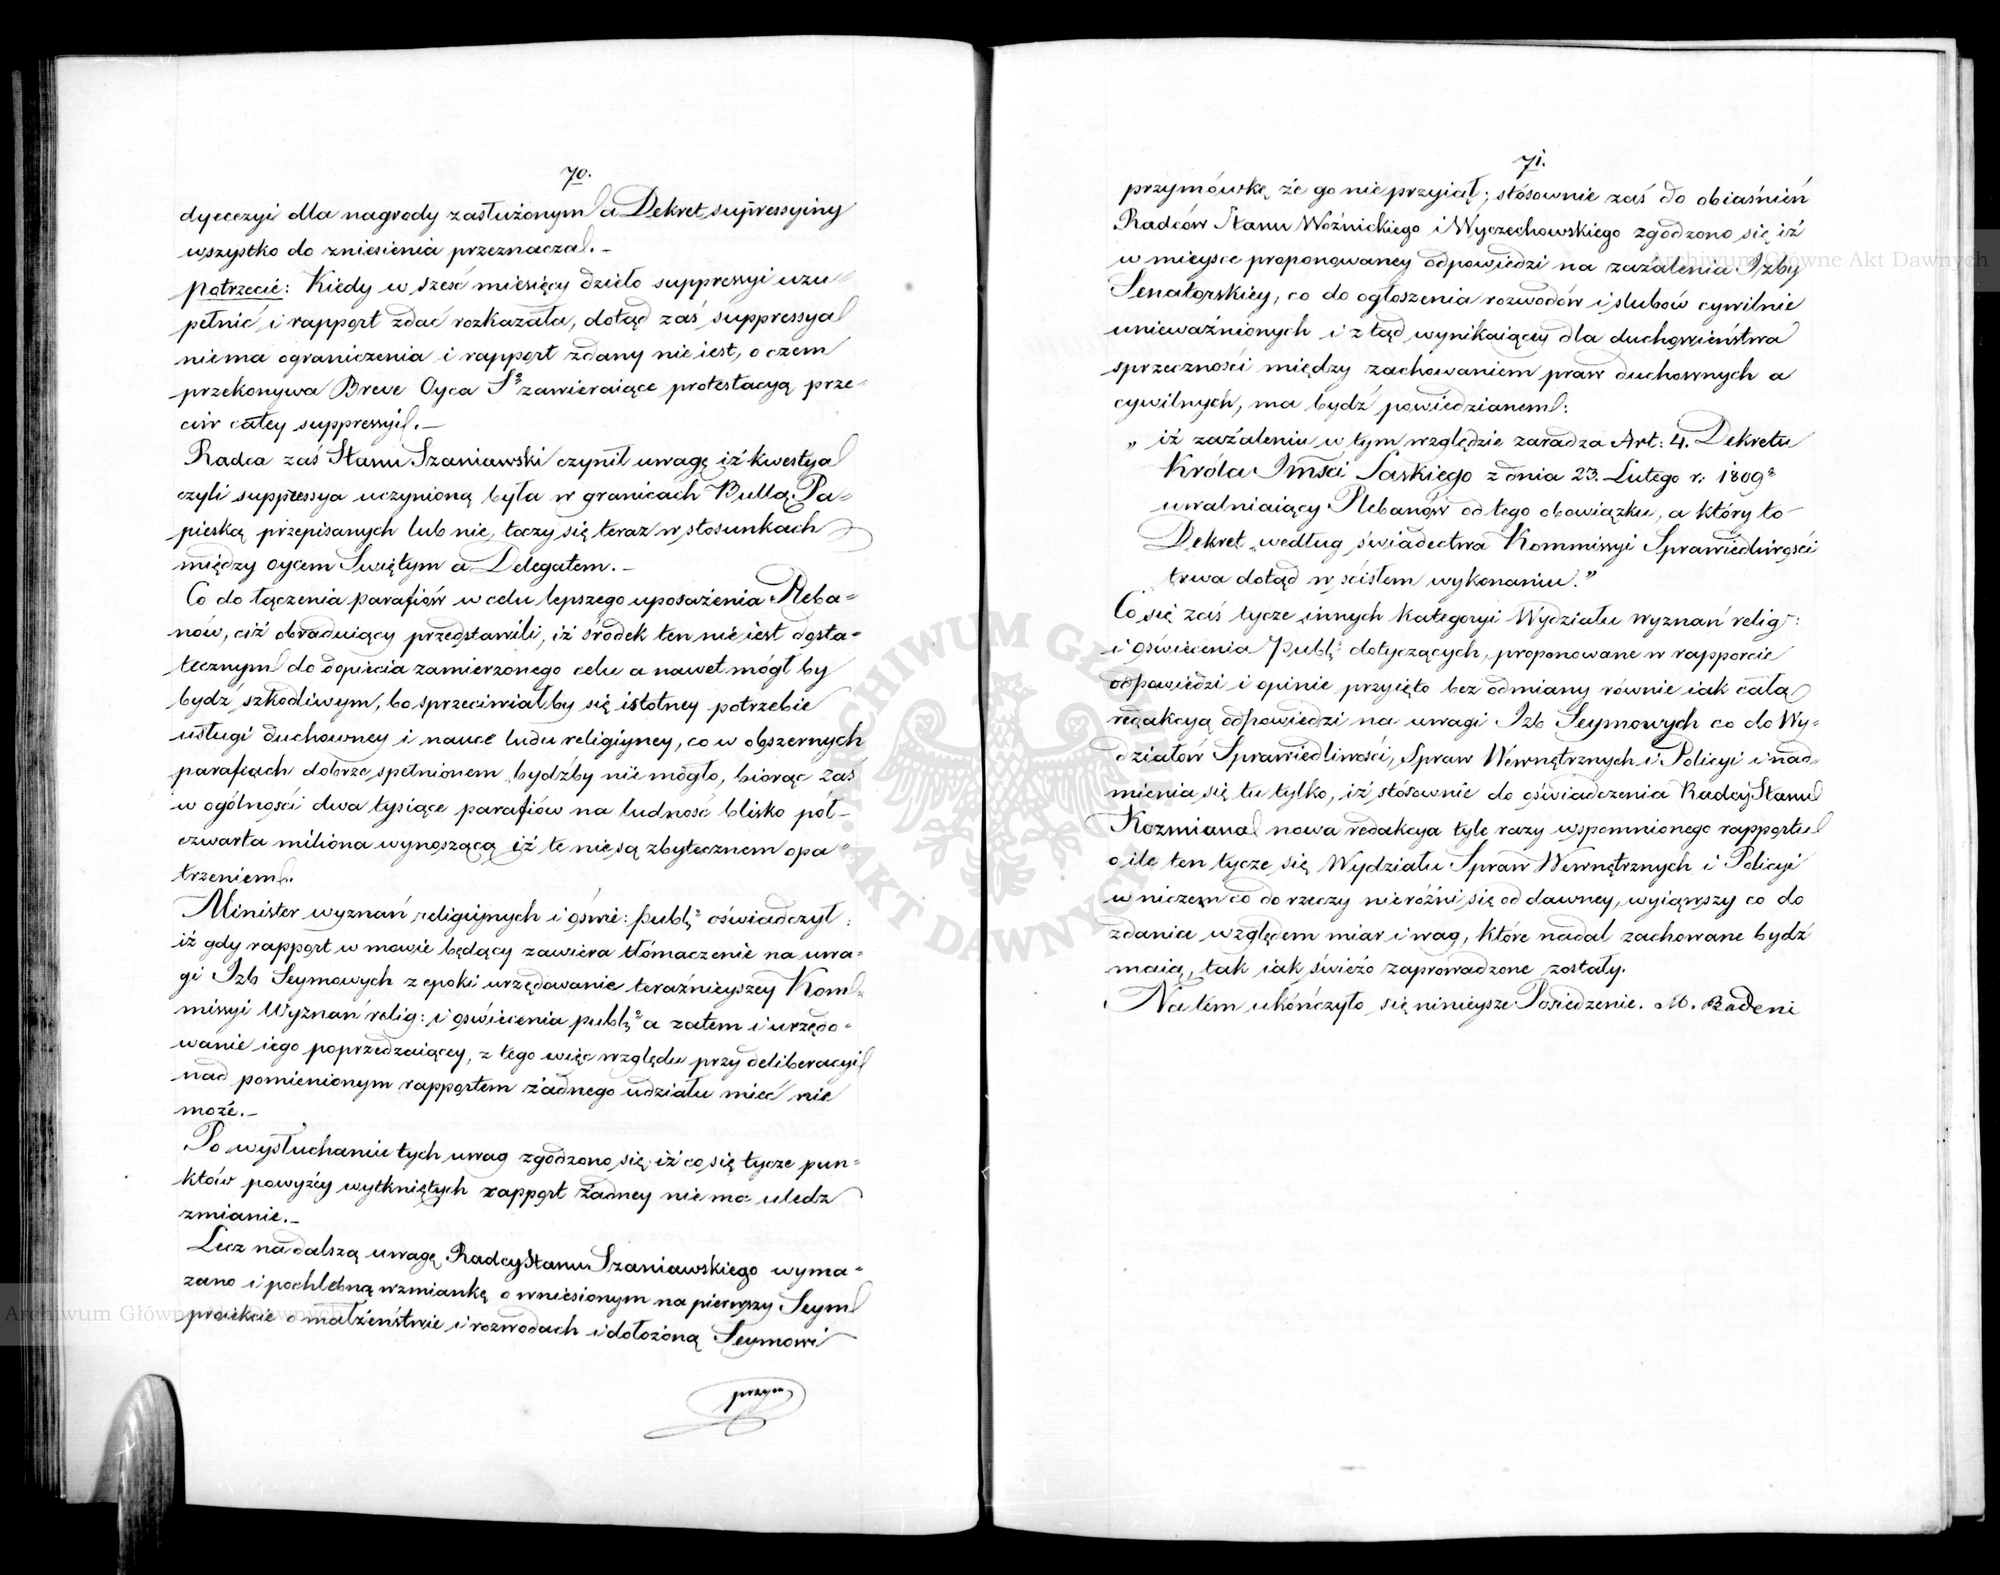 70.
dyecezyi dla nagrody zasłużonym a Dekret suppressyiny
wszystko do zniesienia przeznaczał.–
potrzecie: Kiedy w sześć miesięcy dzieło suppressyi uzu=
pełnić i rapport zdać rozkazała, dotąd zaś suppressya
niema ograniczenia i rapport zdany nie iest, o czem
przekonywa Breve Oyca Sgo zawieraiące protestacyą prze=
ciw całey suppressyi.–
Radca zaś Stanu Szaniawski czynił uwagę iż kwestya
czyli suppressya uczynioną była w granicach Bullą Pa=
pieską przepisanych lub nie, toczy się teraz w stosunkach
między oycem Świętym a Delegatem.–
Co do łączenia parafiów w celu lepszego uposażenia Pleba=
nów, ciż obraduiący przedstawili, iż środek ten nie iest dosta=
tecznym do dopięcia zamierzonego celu a nawet mógł by
bydź szkodliwym, bo sprzeciwiał by się istotney potrzebie
usługi duchowney i nauce ludu religiyney, co w obszernych
parafiach dobrze spełnionem bydźby nie mogło, biorąc zaś
w ogólności dwa tysiące parafiów na ludność blisko pół=
czwarta miliona wynoszącą iż te nie są zbytecznem opa=
trzeniem.
Minister wyznań religiynych i oświe: publgo oświadczył:
iż gdy rapport w mowie będący zawiera tłómaczenie na uwa=
gi Izb Seymowych z epoki urzędowanie teraźnieyszey Kom=
missyi Wyznań relig: i oświecenia publgo a zatem i urzędo=
wanie iego poprzedzaiącey, z tego więc względu przy deliberacyi
nad pomienionym rapportem żadnego udziału mieć nie
może.–
Po wysłuchaniu tych uwag zgodzono się iż co się tycze pun=
któw powyżéy wytkniętych rapport żadney nie ma uledz
zmianie.–
Lecz na dalszą uwagę Radcy Stanu Szaniawskiego wyma=
zano i pochlebną wzmiankę o wniesionym na pierwszy Seym
proiekcie o małżeństwie i rozwodach i dołożoną Seymowi
przym
71.
przymówkę, że go nie przyiął; stósownie zaś do obiaśnień
Radców Stanu Woźnickiego i Wyczechowskiego zgodzono się iż
w mieysce proponowaney odpowiedzi na zażalenia Izby
Senatorskiey, co do ogłoszenia rozwodów i slubów cywilnie
unieważnionych i z tąd wynikaiącey dla duchowieństwa
sprzeczności między zachowaniem praw duchownych a
cywilnych, ma bydź powiedzianem:
„ iż zażaleniu w tym względzie zaradza Art: 4. Dekretu
Króla Jmści Saskiego z dnia 23. Lutego r. 1809go
uwalniaiący Plebanów od tego obowiązku, a który to
Dekret według świadectwa Kommissyi Sprawiedliwości
trwa dotąd w ścisłem wykonaniu."
Co się zaś tycze innych kategoryi Wydziału wyznań relig:
i oświecenia Publgo dotyczących, proponowane w rapporcie
odpowiedzi i opinie przyięto bez odmiany równie iak całą
redakcyą odpowiedzi na uwagi Izb Seymowych co do Wy=
działów Sprawiedliwości, Spraw Wewnętrznych i Policyi i nad=
mienia się tu tylko, iż stósownie do oświadczenia Radcy Stanu
Kozmiana nowa redakcya tyle razy wspomnionego rapportu
o ile ten tycze się Wydziału Spraw Wewnętrznych i Policyi
w niczem co do rzeczy nie różni się od dawney, wyiąwszy co do
zdania względem miar i wag, które nadal zachowane bydź
maią, tak iak świeżo zaprowadzone zostały.
Na tém ukończyło się ninieysze Posiedzenie. M. Badeni
ARCHIWUM GŁÓWNE AKT DAWNYCH
Archiwum Główne Akt Dawnych
Archiwum Główne Akt Dawnych